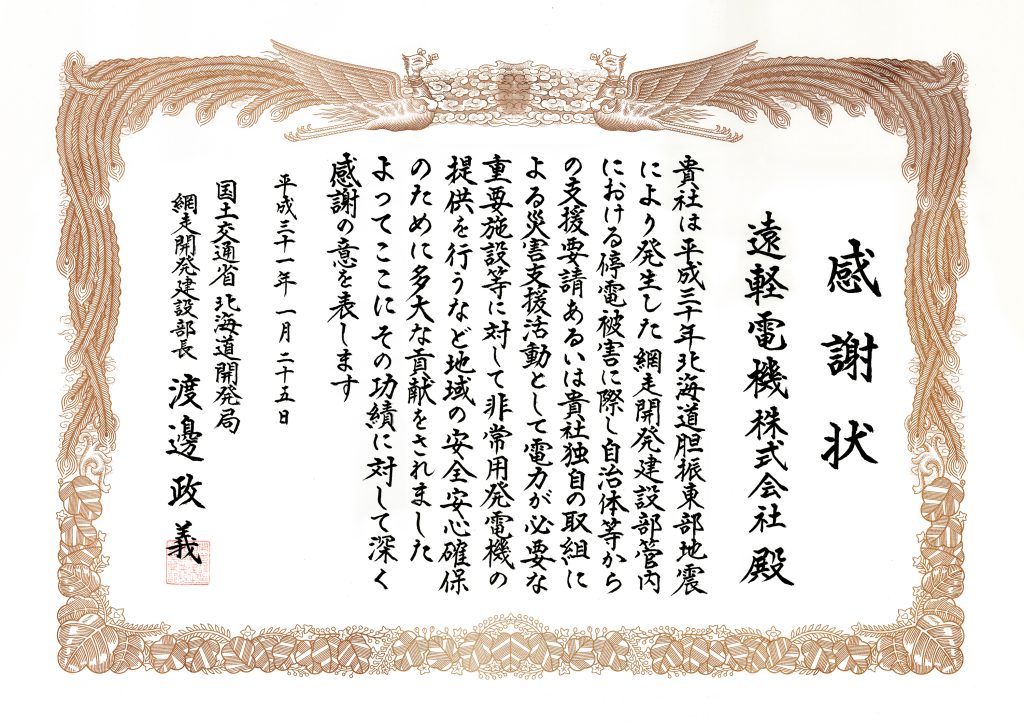 感謝状
遠軽電機株式会社 殿
貴社は平成三十年北海道胆振東部地震
により発生した網走開発建設部管内
における停電被害に際し自治体等から
の支援要請あるいは貴社独自の取組に
よる災害支援活動として電力が必要な
重要施設等に対して非常用発電機の
提供を行うなど地域の安全安心確保
のために多大な貢献をされました
よってここにその功績に対して深く
感謝の意を表します
平成三十一年 一月 二十五日
国土交通省 北海道開発局
網走開発建設部長 渡邊政義